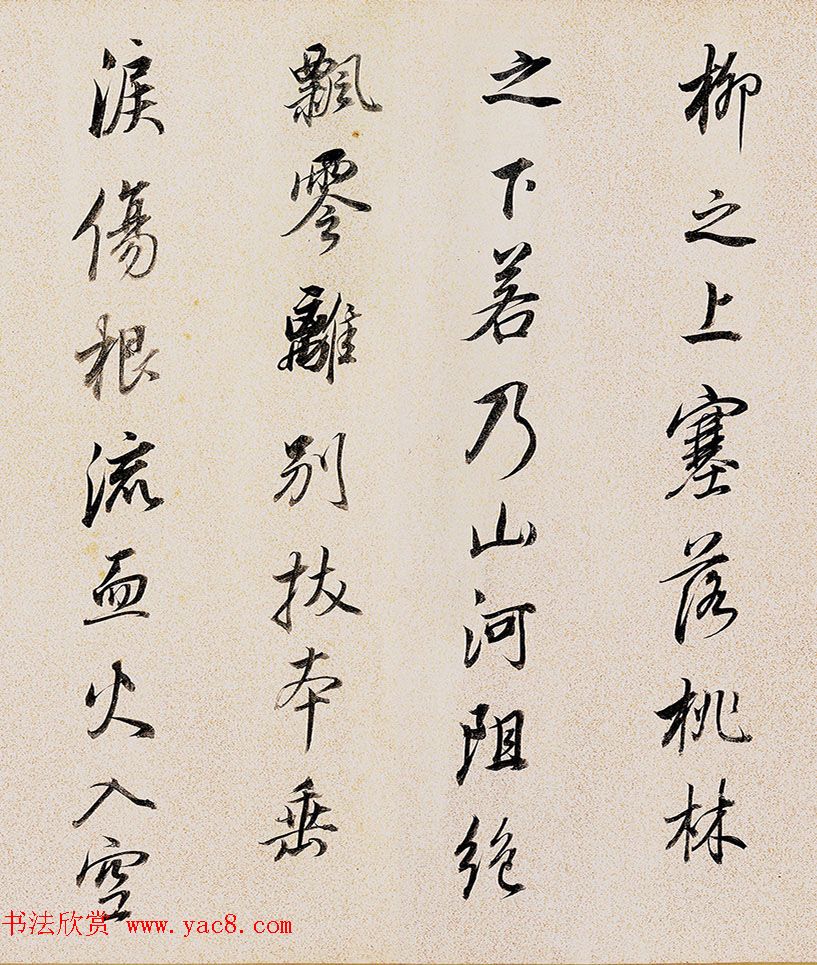 柳之上塞落桃林
之下若乃山河阻絕
飄零離別拔本垂
淚傷根流血火入空
书法欣赏 www.yac8.com